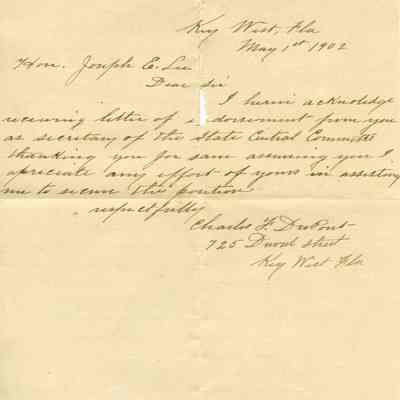 Key West, Fla
May 1st 1902
Hon. Joseph E. Lee
Dear Sir
I herein acknoledge
receiving letter of i dorsement from you
as secretary of the State Central Committe
thanking you for sam assuring you I
apreciate any effort of yours in assisting
me to secure the position
respectfully
Charles F. DuPont
725 Duval street
Key West Fla